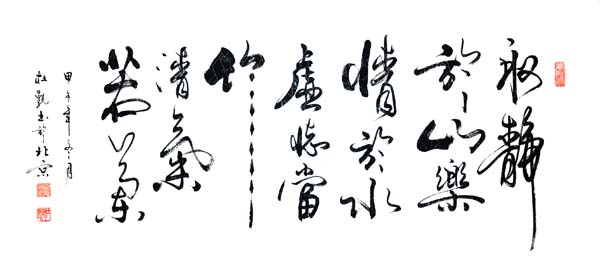 取靜
於山樂
情於水
虛懷當
竹
清氣
若蘭
甲午年冬月
書於北京